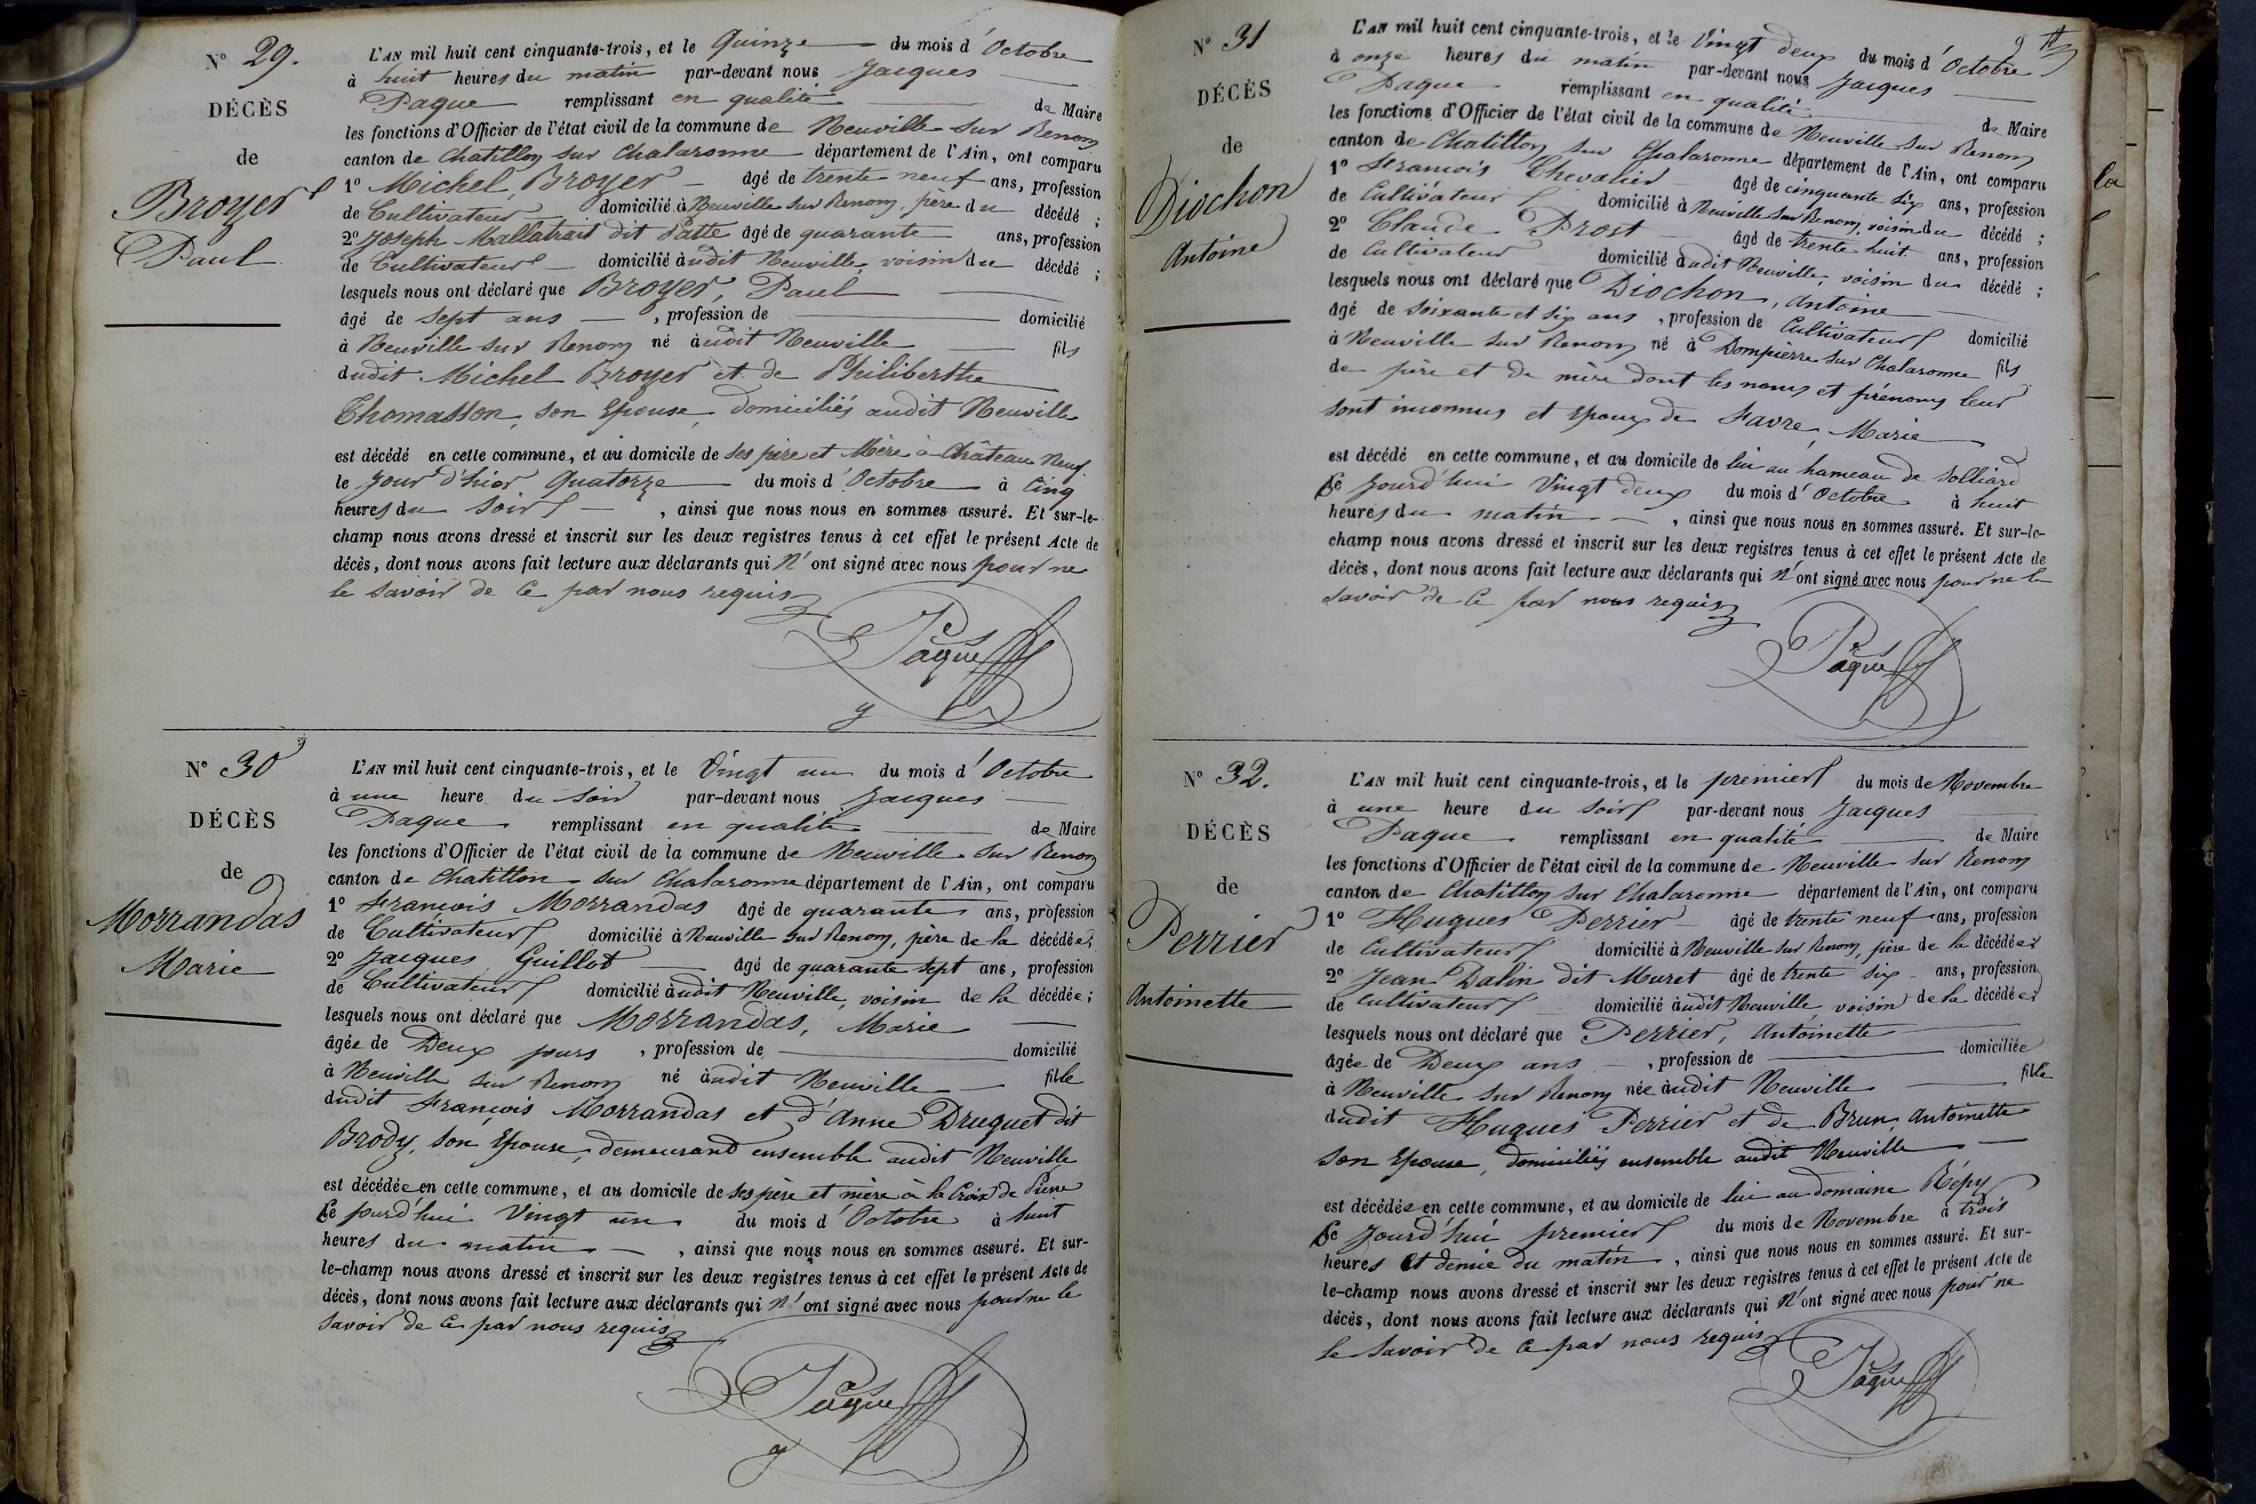 N° 29.
DÉCÈS
de
Broyer
Paul
L'AN mil huit cent cinquante-trois, et le Quinze du mois d'Octobre
à huit heures du matin par-devant nous Jacques
Paque remplissant en qualité de Maire
les fonctions d'Officier de l'état civil de la commune de Neuville sur Renom
canton de Chatillon sur Chalaronne département de l'Ain, ont comparu
1° Michel Broyer âgé de trente neuf ans, profession
de Cultivateur domicilié à Neuville sur Renom, père du décédé ;
2° Joseph Mallatrait dit Patte âgé de quarante ans, profession
de Cultivateur domicilié audit Neuville, voisin du décédé ;
lesquels nous ont déclaré que Broyer, Paul
âgé de sept ans , profession de domicilié
à Neuville sur Renom né audit Neuville fils
dudit Michel Broyer et de Philiberthe
Thomasson, son Epouse, domiciliés audit Neuville
est décédé en cette commune, et au domicile de ses père et Mère à Château Neuf.
le jour d'hier Quatorze du mois d'Octobre à Cinq
heures du Soir , ainsi que nous nous en sommes assuré. Et sur-le-
champ nous avons dressé et inscrit sur les deux registres tenus à cet effet le présent Acte de
décès, dont nous avons fait lecture aux déclarants qui n'ont signé avec nous pour ne
le savoir de ce par nous requis
Paque
N° 30
DÉCÈS
de
Morrandas
Marie
L'AN mil huit cent cinquante-trois, et le Vingt un du mois d'Octobre
à une heure du Soir par-devant nous Jacques
Paque remplissant en qualité de Maire
les fonctions d'Officier de l'état civil de la commune de Neuville sur Renom
canton de Chatillon sur Chalaronne département de l'Ain, ont comparu
1° François Morrandas âgé de quarante ans, profession
de Cultivateur domicilié à Neuville sur Renom, père de la décédée ;
2° Jacques Guillot âgé de quarante sept ans, profession
de Cultivateur domicilié audit Neuville, voisin de la décédée ;
lesquels nous ont déclaré que Morrandas, Marie
âgée de Deux jours , profession de domicilié
à Neuville sur Renom né audit Neuville fille
dudit François Morrandas et d'Anne Druguet dit
Brody, son Epouse, demeurand ensemble audit Neuville
est décédée en cette commune, et au domicile de ses père et mère à la Croix de Pierre
Ce jourd'hui Vingt un du mois d'Octobre à huit
heures du matin , ainsi que nous nous en sommes assuré. Et sur-
le-champ nous avons dressé et inscrit sur les deux registres tenus à cet effet le présent Acte de
décès, dont nous avons fait lecture aux déclarants qui n'ont signé avec nous pour ne le
savoir de ce par nous requis
Paque
N° 31
DÉCÈS
de
Diochon
Antoine
L'AN mil huit cent cinquante-trois, et le Vingt deux du mois d'Octobre
à onze heures du matin par-devant nous Jacques
Paque remplissant en qualité de Maire
les fonctions d'Officier de l'état civil de la commune de Neuville sur Renom
canton de Chatillon sur Chalaronne département de l'Ain, ont comparu
1° François Chevalier âgé de cinquante six ans, profession
de Cultivateur domicilié à Neuville sur Renom, voisin du décédé ;
2° Claude Prost âgé de trente huit ans, profession
de Cultivateur domicilié audit Neuville, voisin du décédé ;
lesquels nous ont déclaré que Diochon, Antoine
âgé de soixante et six ans , profession de Cultivateur domicilié
à Neuville sur Renom né à Dompierre sur Chalaronne fils
de père et de mère dont les noms et prénoms leur
sont inconnus et Epoux de Favre, Marie
est décédé en cette commune, et au domicile de lui au hameau de Solliard
Ce jourd'hui Vingt deux du mois d'Octobre à huit
heures du matin , ainsi que nous nous en sommes assuré. Et sur-le-
champ nous avons dressé et inscrit sur les deux registres tenus à cet effet le présent Acte de
décès, dont nous avons fait lecture aux déclarants qui n'ont signé avec nous pour ne le
savoir de ce par nous requis
Paque
N° 32.
DÉCÈS
de
Perrier
Antoinette
L'AN mil huit cent cinquante-trois, et le premier du mois de Novembre
à une heure du soir par-devant nous Jacques
Paque remplissant en qualité de Maire
les fonctions d'Officier de l'état civil de la commune de Neuville sur Renom
canton de Chatillon sur Chalaronne département de l'Ain, ont comparu
1° Hugues Perrier âgé de trente neuf ans, profession
de Cultivateur domicilié à Neuville sur Renom, père de la décédée ;
2° Jean Dalin dit Muret âgé de trente six ans, profession
de Cultivateur domicilié audit Neuville, voisin de la décédée ;
lesquels nous ont déclaré que Perrier, Antoinette
âgée de Deux ans , profession de domiciliée
à Neuville sur Renom née audit Neuville fille
dudit Hugues Perrier et de Brun, Antoinette
son Epouse, domiciliés ensemble audit Neuville
est décédée en cette commune, et au domicile de lui au domaine Répy
Ce jourd'hui premier du mois de Novembre à trois
heures et demie du matin , ainsi que nous nous en sommes assuré. Et sur-
le-champ nous avons dressé et inscrit sur les deux registres tenus à cet effet le présent Acte de
décès, dont nous avons fait lecture aux déclarants qui n'ont signé avec nous pour ne
le savoir de ce par nous requis
Paque
la